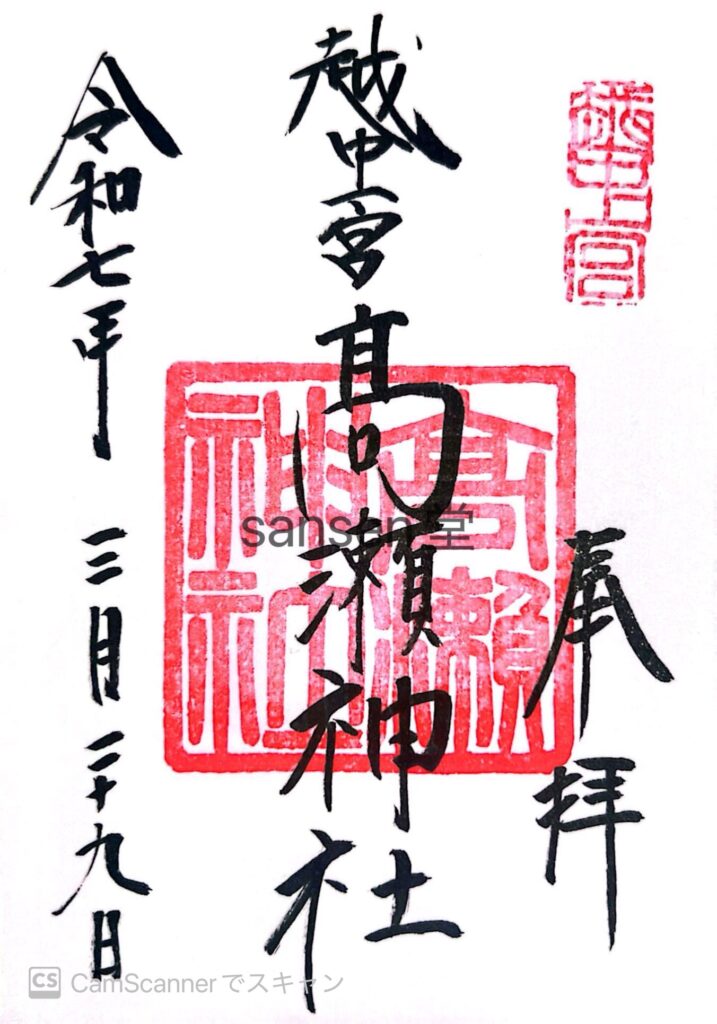 越中一宮
奉拝
越中一宮 髙瀬神社
高瀬
神社
令和七年 三月二十九日
sansen堂
CS CamScannerでスキャン